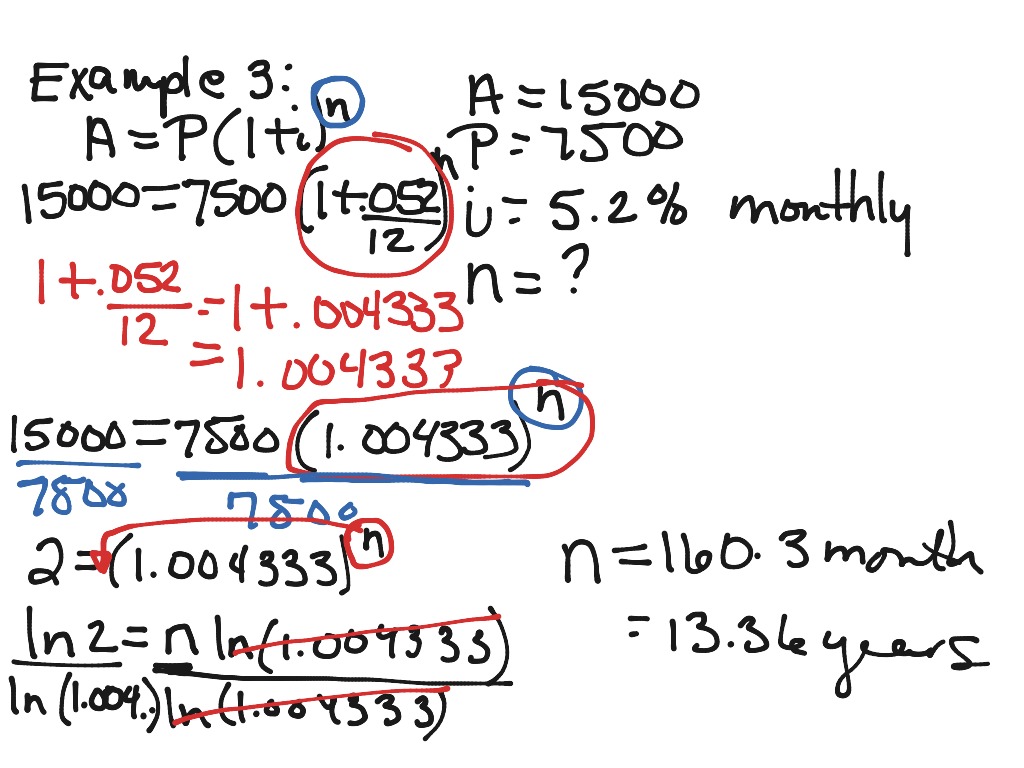 Example 3:
A = P(1+i)^n
15000 = 7500 (1+.052/12)^n
1+.052/12 = 1+.004333
= 1.004333
15000 = 7500 (1.004333)^n
7500 7500
2 = (1.004333)^n
ln 2 = n ln (1.004333)
ln (1.004..) ln (1.004333)
A = 15000
P = 7500
i = 5.2% monthly
n = ?
n = 160.3 month
= 13.36 years